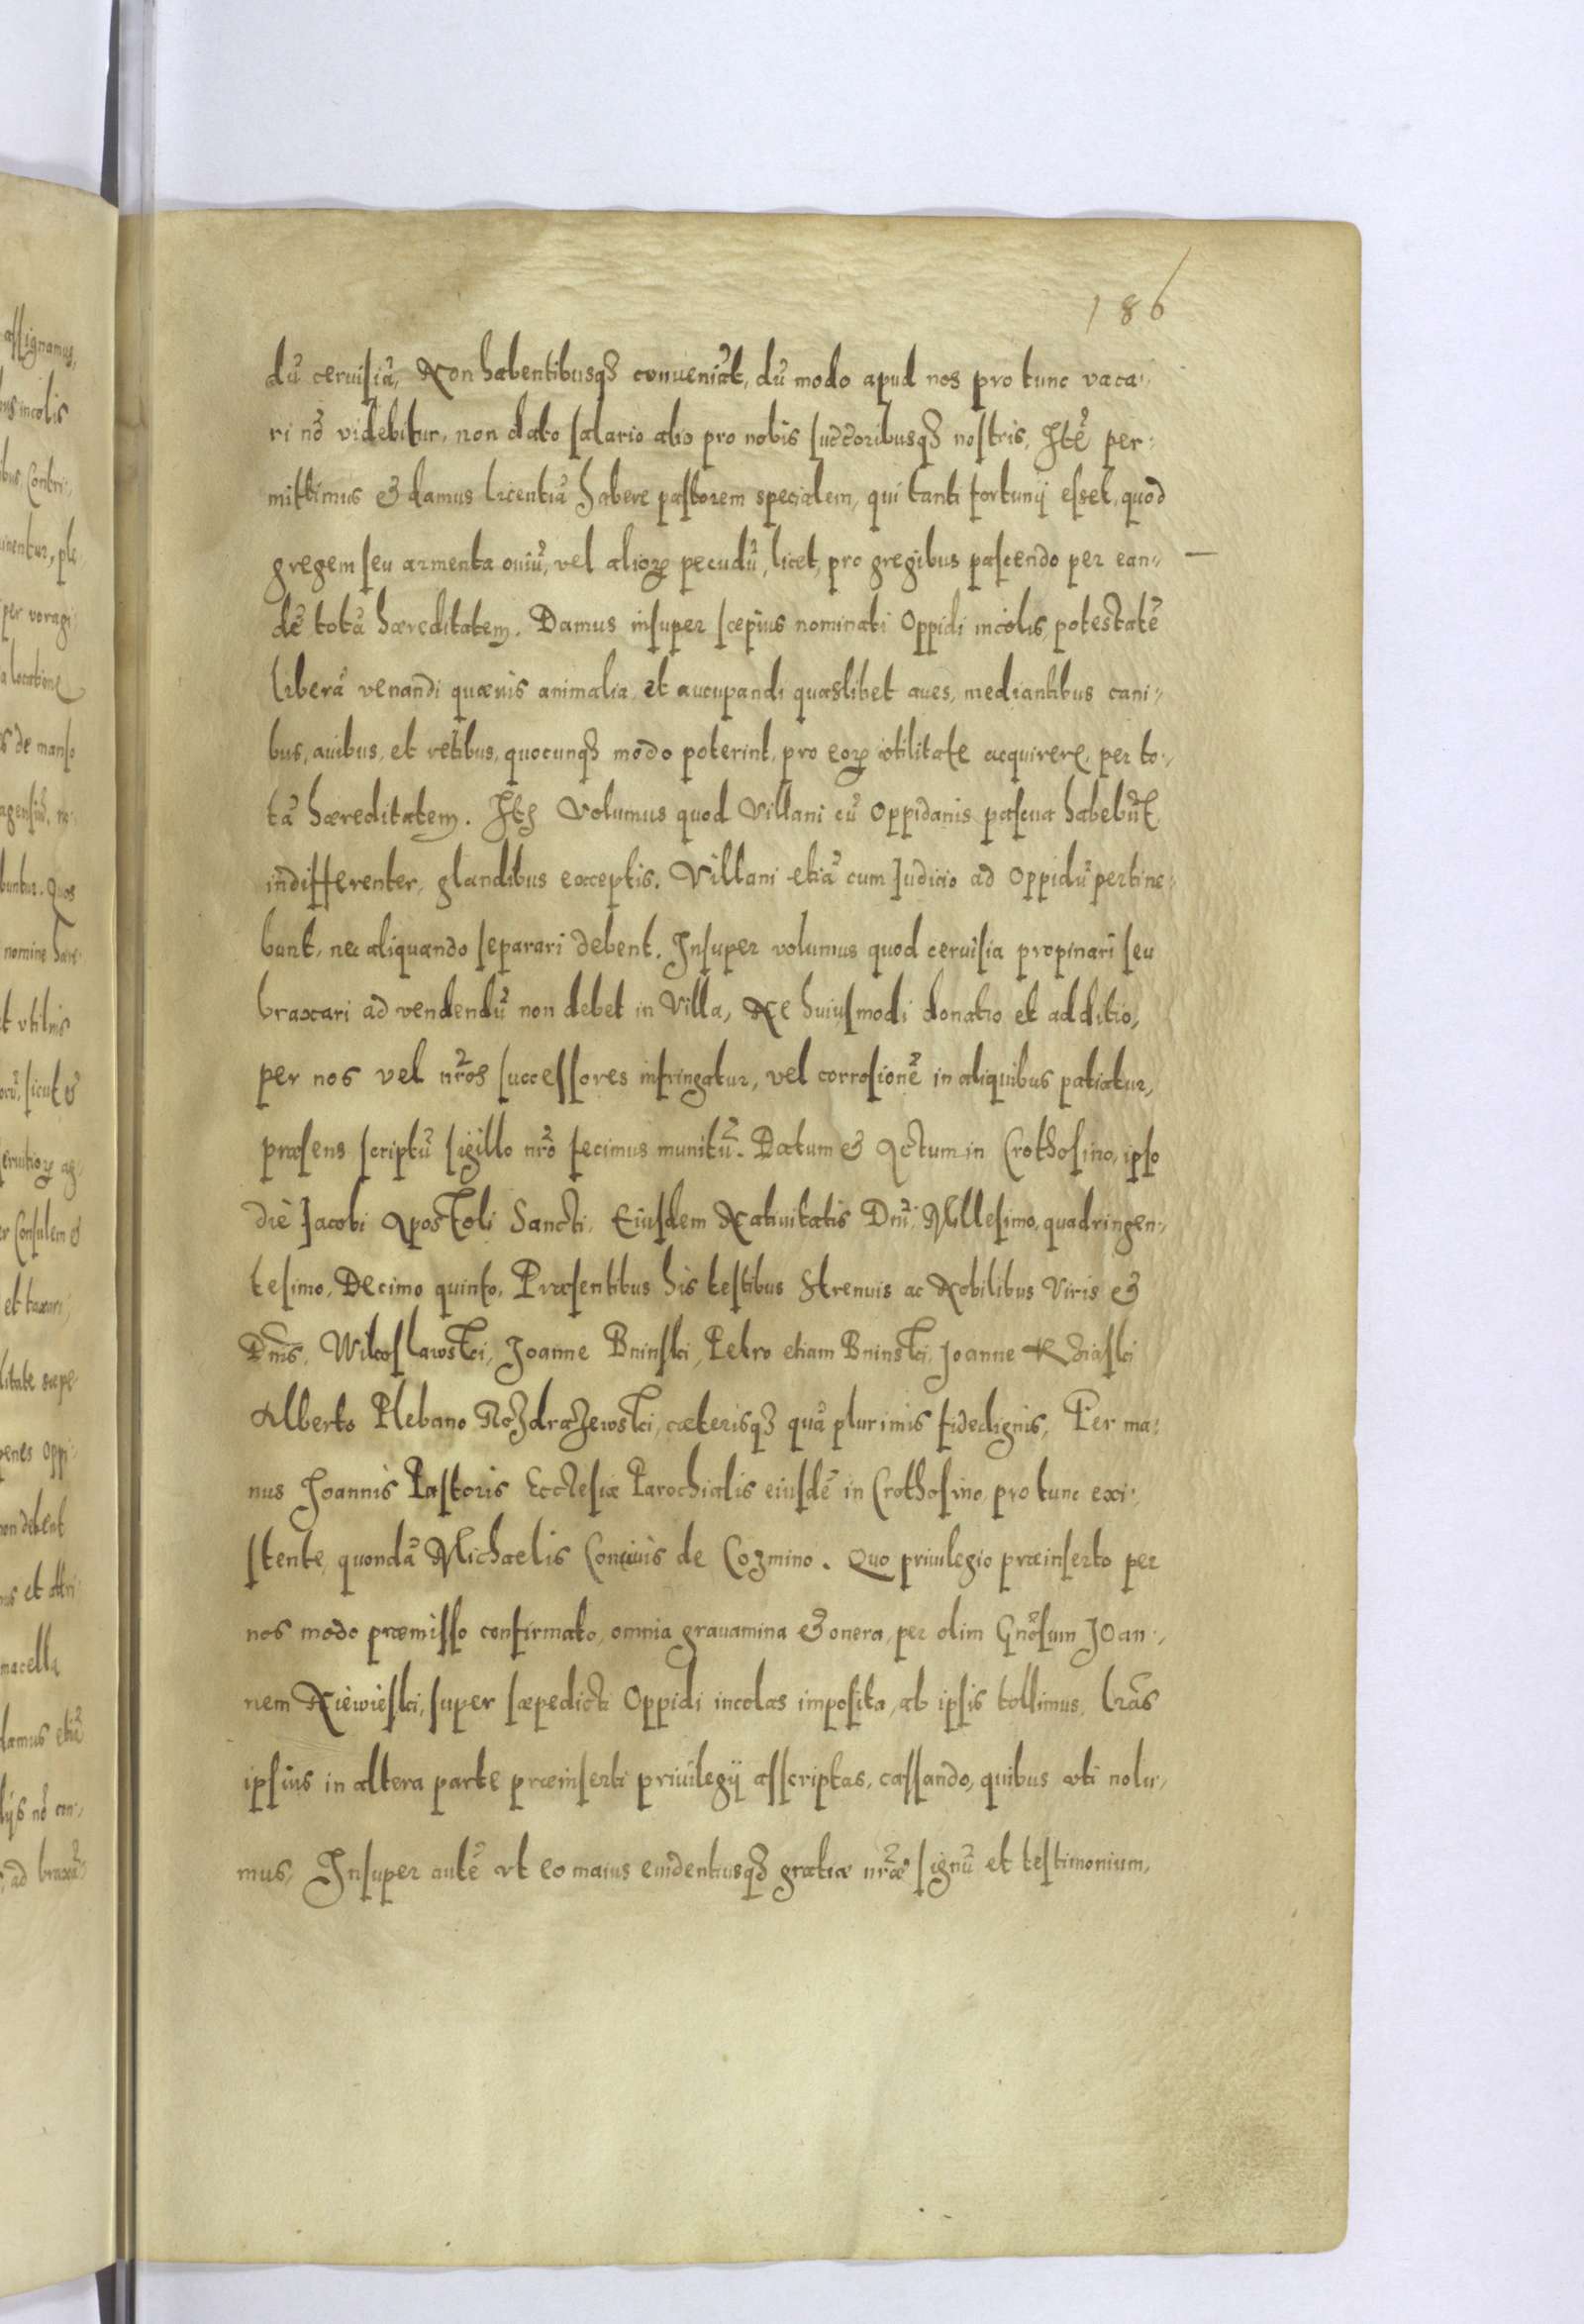 186
dũ ceruisiã, Non habentibusq3 conueniãt, dũ modo apud nos pro tunc vaca-
ri nõ videbitur, non dato salario alio pro nobis succ̃oribusq3 nostris, Itẽ per-
mittimus & damus licentiã habere pastorem specialem, qui tanti fortunij esset, quod
gregem seu armenta ouiũ, vel alioꝝ pecudũ, licet, pro gregibus pascendo per ean-
dẽ totã hæreditatem. Damus insuper sæpius nominati Oppidi incolis potestatẽ
liberã venandi quæuis animalia et aucupandi quaslibet aues, mediantibus cani-
bus, auibus, et retibus, quocunq3 modo poterint, pro eoꝝ vtilitate acquirere, per to-
tã hæreditatem. Itẽ Volumus quod Villani cũ Oppidanis pascua habebũt
indifferenter, glandibus exceptis. Villani etiã cum Iudicio ad Oppidũ pertine-
bunt, nec aliquando separari debent. Insuper volumus quod ceruisia propinari seu
braxari ad vendendũ non debet in Villa, Ne huiusmodi donatio et additio,
per nos vel nr̃os successores infringatur, vel corrosionẽ in aliquibus patiatur,
præsens scriptũ sigillo nr̃o fecimus munitũ. Datum & Actum in Crothosino, ipso
die Iacobi Apostoli Sancti, Eiusdem Natiuitatis Dnĩ, Millesimo, quadringen-
tesimo, Decimo quinto, Præsentibus his testibus Strenuis ac Nobilibus Viris &
Dnis, Wilcoslawski, Joanne Bninski, Petro etiam Bninski, Joanne
Alberto Plebano Rozdrazewski, cæterisq3 quã plurimis fidedignis, Per ma-
nus Joannis Pastoris Ecclesiæ Parochialis eiusdẽ in Crothosino, pro tunc exi-
stente, quondã Michaelis Conciuis de Cozmino. Quo priuilegio præinserto per
nos modo præmisso confirmato, omnia grauamina & onera, per olim Gnõsum Joan-
nem Niewieski, super sæpedicti Oppidi incolas imposita, ab ipsis tollimus, lr̃as
ipsius in altera parte præinserti priuilegij asscriptas, cassando, quibus vti nolu-
mus, Insuper autẽ vt eo maius euidentiusq3 gratiæ nr̃æ signũ et testimonium,